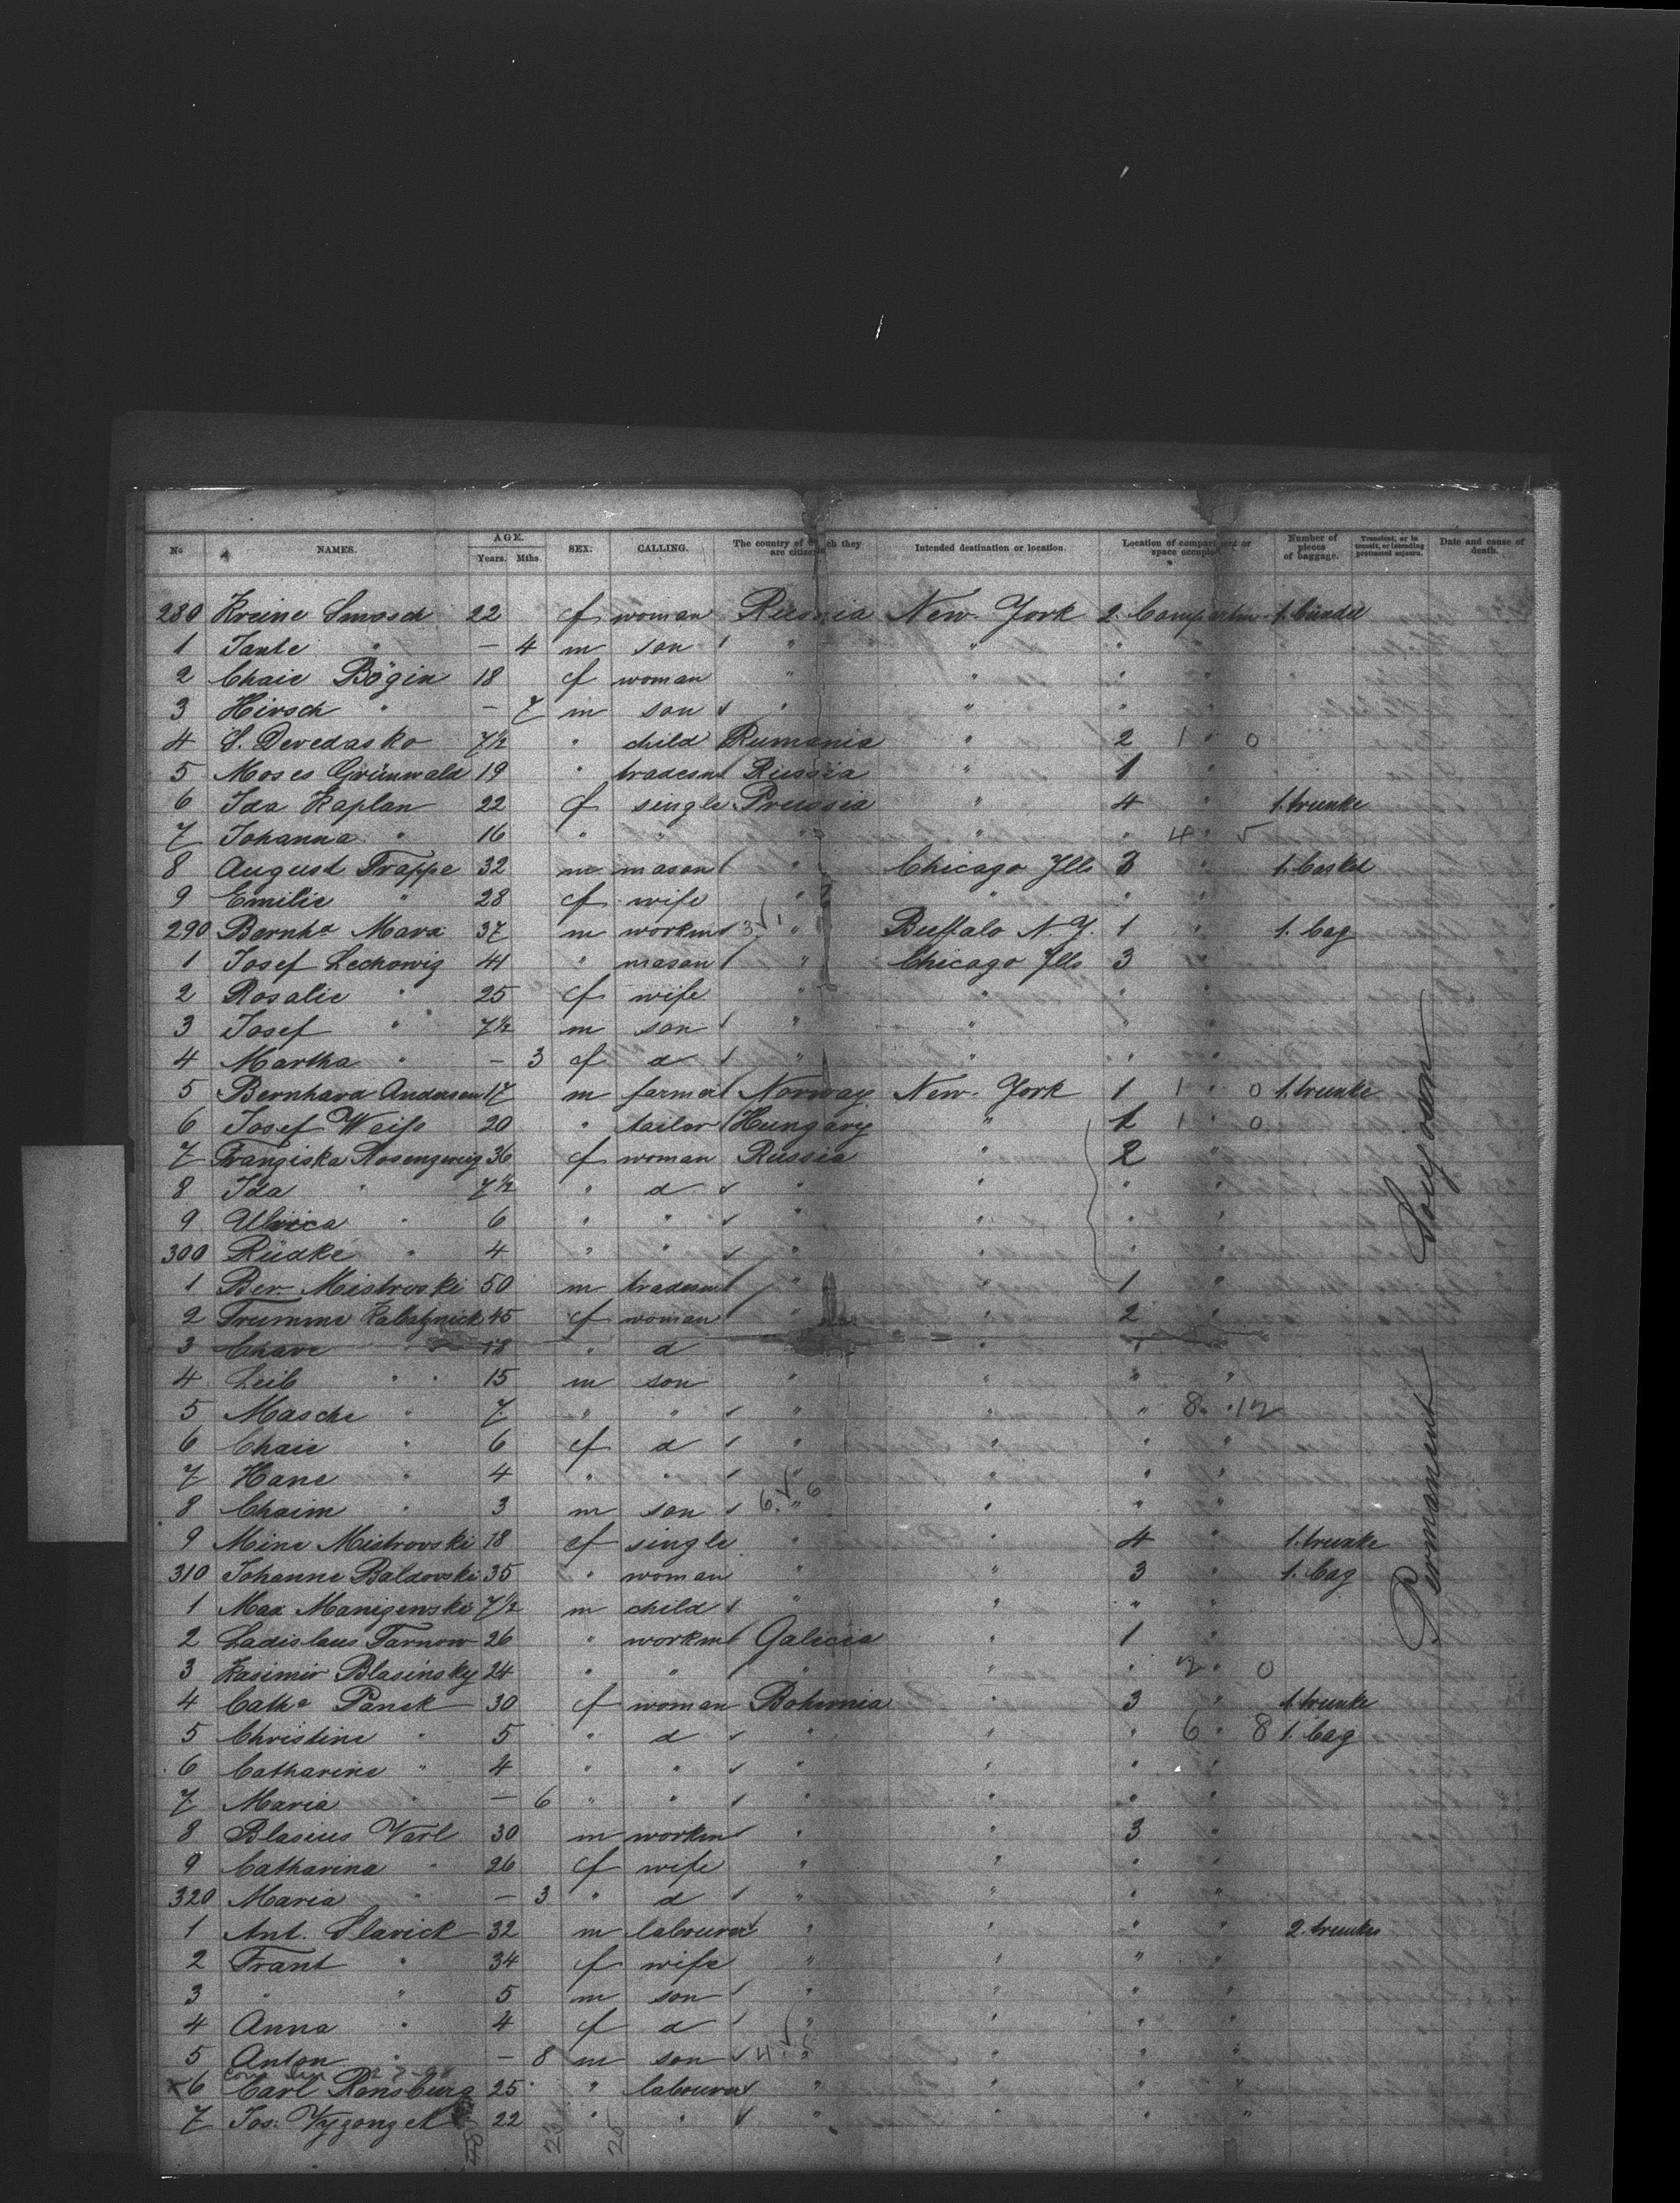 No NAMES. AGE. Years. Mths. SEX. CALLING. The country of which they are citizens Intended destination or location. Location of compartment or space occupied Number of pieces of baggage. Transient, or in transit, or intending protracted sojourn. Date and cause of death.
280 Kreine Smosch 22 f woman Russia New-York 2. Compartm. 1. bündel
1 Tante " — 4 m son " " "
2 Chaie Bögin 18 f woman " " "
3 Hirsch " — 7 m son " " "
4 S. Deredasko 7½ " child Rumania " 2 1 " 0
5 Moses Grünwald 19 " tradesm Russia " 1 "
6 Ida Kaplan 22 f single Prussia " 4 " 1. trunke
7 Johanna " 16 " " " " " 4 " 5
8 August Trappe 32 m mason " Chicago Ills 3 " 1. basket
9 Emilie " 28 f wife " " "
290 Bernhd Mara 37 m workm 3 1 " Buffalo N.Y. 1 " 1. bag
1 Josef Lechowig 41 " mason " Chicago Ills 3 "
2 Rosalie " 25 f wife " " "
3 Josef " 7½ m son " " "
4 Martha " — 3 f d " " " "
5 Bernhard Andersen 17 m farmer Norway New-York 1 1 " 0 1. trunke
6 Josef Weiss 20 " tailor Hungary " 1 1 " 0
7 Franziska Rosenzweig 36 f woman Russia " 2 "
8 Ida " 7½ " d " " " "
9 Ulrica " 6 " " " " " "
300 Rüdke " 4 " " " " " "
1 Ber Mistrovski 50 m tradesm " " 1 "
2 Trumme Kabatznick 45 f woman " " 2 "
3 Chave 18 " d " "
4 Leib " " 15 m son " " " "
5 Masche " 7 " " " " " 8 " 12
6 Chaie " 6 f d " " " "
7 Hane " 4 " " " " " "
8 Chaim " 3 m son 6 " 6 " " "
9 Mine Mistrovski 18 f single " " 4 " 1. trunke
310 Johanne Baldovski 35 " woman " " 3 " 1. bag
1 Max Manigenski 7½ m child " " "
2 Ladislaus Tarnow 26 " workm Galicia " 1 "
3 Kasimir Blasinsky 24 " " " " " 2 " 0
4 Cathe Panek 30 f woman Bohemia " 3 " 1. trunke
5 Christine " 5 " d " " " 6 " 8 1. bag
6 Catharine " 4 " " " " " "
7 Maria " — 6 " " " " "
8 Blasius Varl 30 m workm " " 3 "
9 Catharina " 26 f wife " " " "
320 Maria " — 3 " d " " " "
1 Ant. Slavick 32 m labourer " " " " 2. trunkes
2 Frant " 34 f wife " " "
3 " " 5 m son " " " "
4 Anna " 4 f d " " " "
5 Anton " — 8 m son 4 " 5 " " "
6 Carl Rensburg 25 " labourer " " " "
7 Jos. Vyzonzek 22 " " " " "
Permanent Soujourn